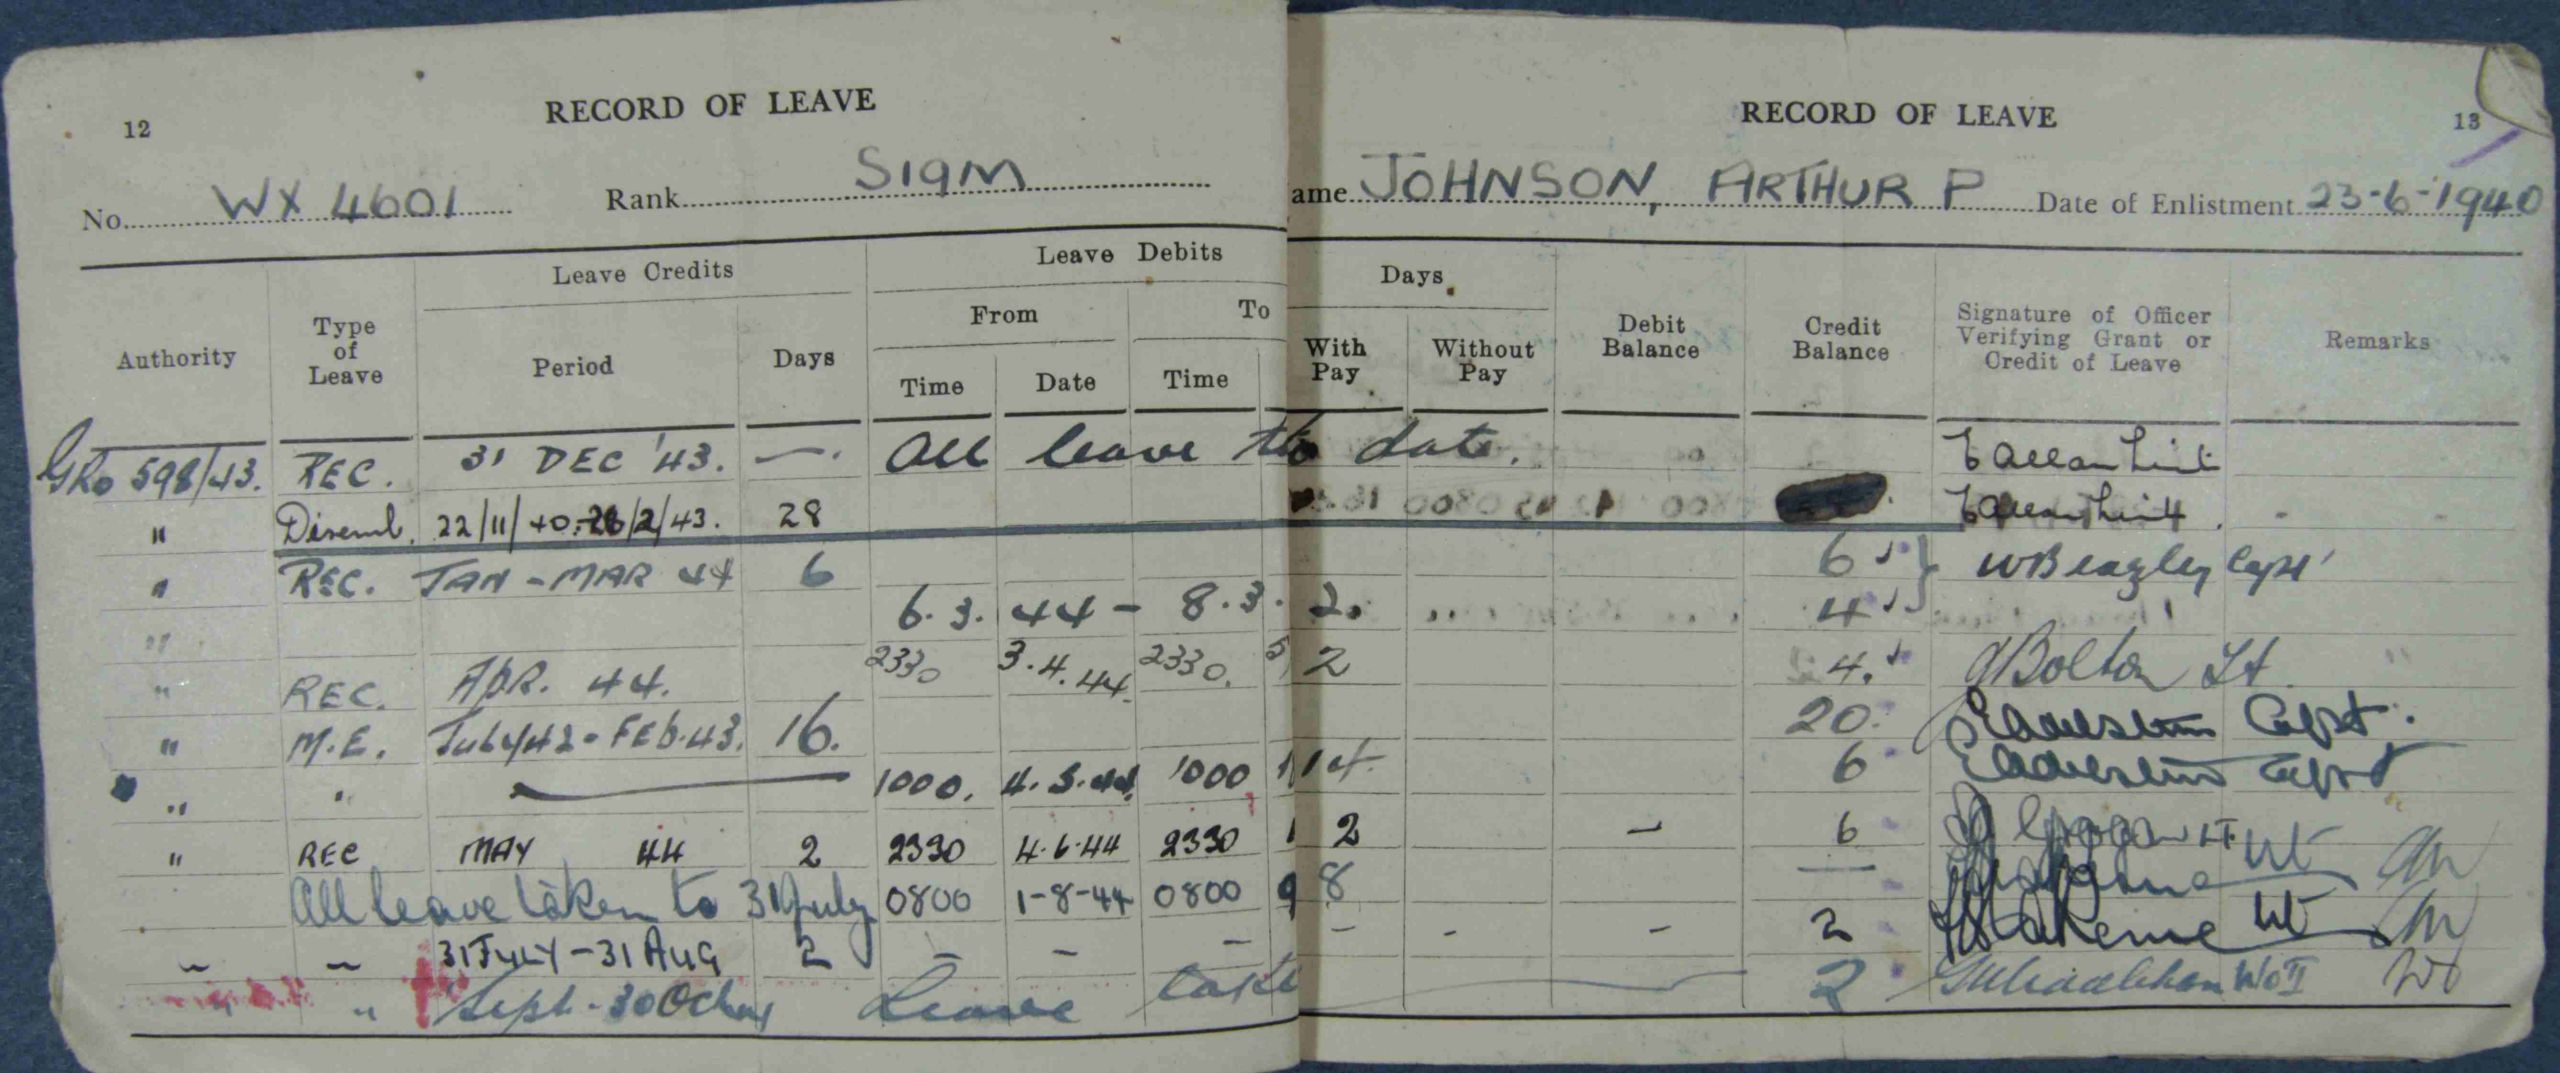 12 RECORD OF LEAVE
RECORD OF LEAVE 13
No. WX 4601 Rank SIGM
ame JOHNSON, ARTHUR P Date of Enlistment 23-6-1940
Leave Credits Leave Debits Days
Authority Type of Leave Period Days From To With Pay Without Pay Debit Balance Credit Balance Signature of Officer Verifying Grant or Credit of Leave Remarks
Time Date Time
GRO 598/43. REC. 31 DEC '43. —. All leave to date.
" Disemb. 22/11/40-26/2/43. 28
" REC. JAN - MAR 44 6 6 WBeazley Capt
" 6.3.44 - 8.3. 2. 4
" REC. APR. 44. 2330 3.4.44 2330. 5 2 4. Bolton Lt
" M.E. July 42 - FEB. 43. 16. 20. Capt.
" " 1000. 4.5.44. 1000 1 14 6 Capt
" REC MAY 44 2 2330 4.6.44 2330 1 2 — 6 LT.
All leave taken to 31 July 0800 1-8-44 0800 9 8 — Lt
" " 31 JULY - 31 AUG 2 — — — - - - 2 Lt
" " Sept - 30 Leave take 2 WO II